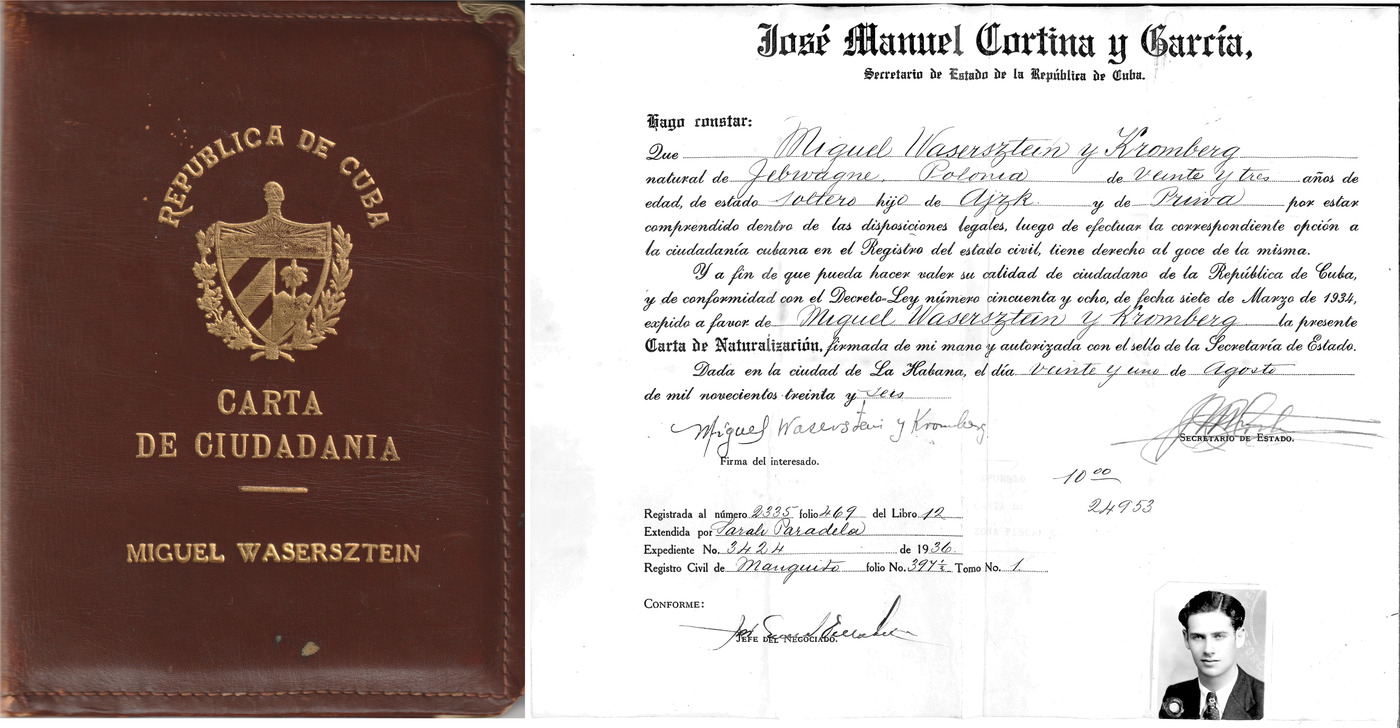 REPUBLICA DE CUBA
CARTA
DE CIUDADANIA
MIGUEL WASERSZTEIN
José Manuel Cortina y García,
Secretario de Estado de la República de Cuba.
Hago constar:
Que Miguel Wasersztein y Kromberg
natural de Jebwagne, Polonia de veinte y tres años de
edad, de estado soltero hijo de Ajzk. y de Priwa por estar
comprendido dentro de las disposiciones legales, luego de efectuar la correspondiente opción a
la ciudadanía cubana en el Registro del estado civil, tiene derecho al goce de la misma.
Y a fin de que pueda hacer valer su calidad de ciudadano de la República de Cuba,
y de conformidad con el Decreto-Ley número cincuenta y ocho, de fecha siete de Marzo de 1934,
expido a favor de Miguel Wasersztein y Kromberg la presente
Carta de Naturalización, firmada de mi mano y autorizada con el sello de la Secretaría de Estado.
Dada en la ciudad de La Habana, el día veinte y uno de Agosto
de mil novecientos treinta y seis
Miguel Waserstein y Kromberg
Firma del interesado.
SECRETARIO DE ESTADO.
10 00
24953
Registrada al número 2335 folio 469 del Libro 12
Extendida por Sarah Paradela
Expediente No. 3424 de 1936.
Registro Civil de Manguito folio No. 397½ Tomo No. 1.
CONFORME:
JEFE DEL NEGOCIADO.